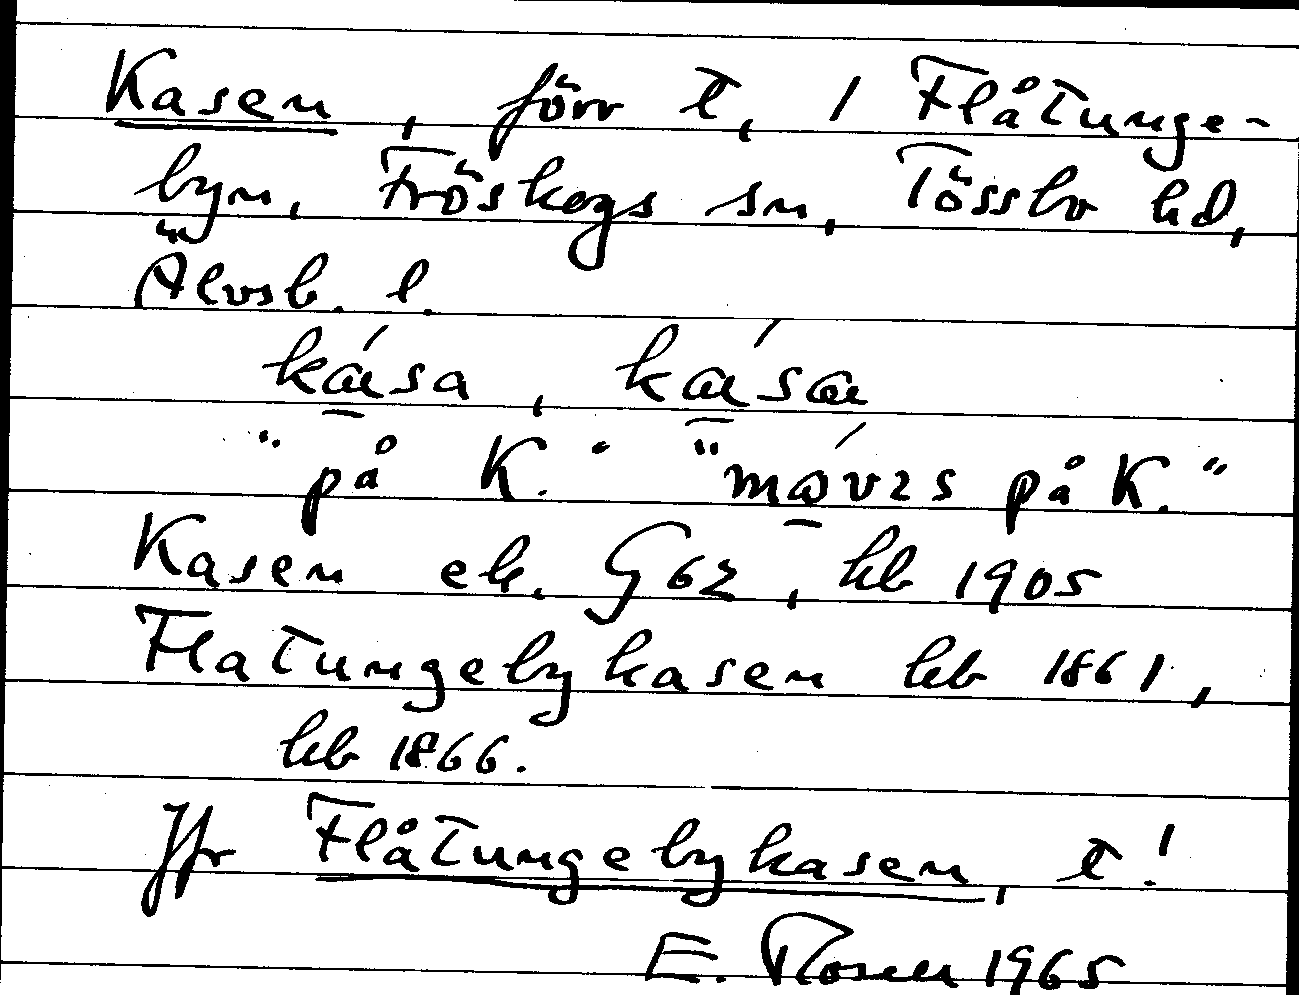 Kasen, förr t, 1 Flåtunge-
byn, Fröskogs sn, Tössbo hd,
Älvsb. l.
ká̱sa, ká̱sa
"på K." "mǫ́vɩs på K."
Kasen ek. G62, hb 1905
Flatungebykasen hb 1861,
hb 1866.
Jfr Flåtungebykasen, t!
E. Rosell 1965